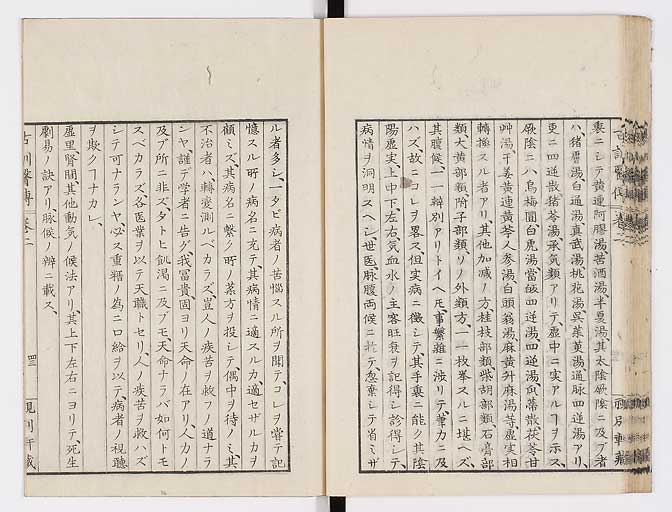 裏ニシテ黄連阿膠湯、苦酒湯、半夏湯、其太陰厥陰ニ及ブ者
ハ、猪膚湯、白通湯、真武湯、桃花湯、呉茱萸湯、通脉四逆湯アリ、
更ニ四逆散、猪苓湯、承気類アリテ、虚中ニ実アルヿヲ示ス、
厥陰ニハ烏梅圓、白虎湯、當皈四逆湯、四逆湯、瓜蒂散、茯苓甘
艸湯、干姜黄連黄芩人参湯、白頭翁湯、麻黄升麻湯等、虚実相
轉換スル者アリ、其他加减ノ方、桂枝部類、柴胡部類、石膏部
類、大黄部類、附子部類、ソノ外類方、一一枚挙スルニ堪ヘズ、
其腹候、一一辨別アリトイヘ𪜈、事繁雑ニ渉リテ、筆力ニ及
ハズ、故ニコレヲ畧ス、但実病ニ徴シテ、其手裏ニ能ク其陰
陽虚実、上中下左右気血水ノ主客旺衰ヲ記得シ診得シテ、
病情ヲ洞明スヘシ、世医脉腹両候ニ於テ、怱棄シテ省ミザ
ル者多シ、一タビ病者ノ苦悩スル所ヲ聞テ、コレヲ嘗テ記
憶スル所ノ病名ニ充テ、其病情ニ適スルカ適セザルカヲ
顧ミズ、其病名ニ繋ク所ノ薬方ヲ投シテ、偶中ヲ待ノミ、其
不治者ハ、轉変測ルベカラズ、豈人ノ疾苦ヲ救フノ道ナラ
ンヤ、謹デ学者ニ告グ、我冨貴固ヨリ天命ノ在アリ、人力ノ
及ブ所ニ非ズ、タトヒ飢渇ニ及ブモ、天命ナラバ如何トモ
スベカラズ、各医業ヲ以テ天職トセリ、人ノ疾苦ヲ救ハズ
シテ可ナランヤ、必ス重糈ノ為ニ口給ヲ以テ、病者ノ視聴
ヲ欺クヿナカレ、
虚里、腎間其他動気ノ候法アリ、其上下左右ニヨリテ、死生
劇易ノ訣アリ、脉候ノ辨ニ載ス、